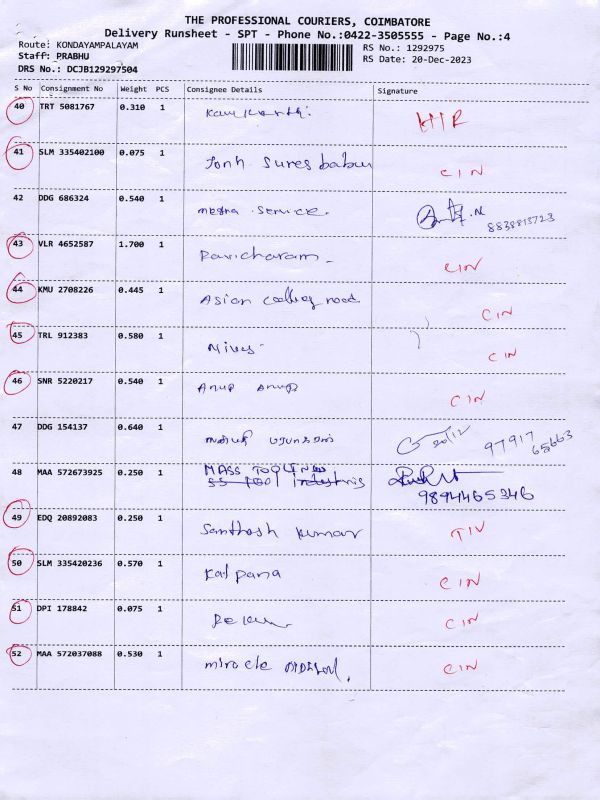 THE PROFESSIONAL COURIERS, COIMBATORE
Delivery Runsheet - SPT - Phone No.:0422-3505555 - Page No.:4
Route: KONDAYAMPALAYAM RS No.: 1292975
Staff: PRABHU RS Date: 20-Dec-2023
DRS No.: DCJB129297504
S No Consignment No Weight PCS Consignee Details Signature
40 TRT 5081767 0.310 1
41 SLM 335402100 0.075 1 Jonh Suresbabu CIN
42 DDG 686324 0.540 1 Service. 8838813723
43 VLR 4652587 1.700 1 Ravicharam - CIN
44 KMU 2708226 0.445 1 Asian road CIN
45 TRL 912383 0.580 1 CIN
46 SNR 5220217 0.540 1 Anup Anup CIN
47 DDG 154137 0.640 1 20/12 97917 65663
48 MAA 572673925 0.250 1 MASS TOOL Industries 9894465346
49 EDQ 20892083 0.250 1 Santhosh Kumar TIN
50 SLM 335420236 0.570 1 Kalpana CIN
51 DPI 178842 0.075 1 CIN
52 MAA 572037088 0.530 1 miracle CIN